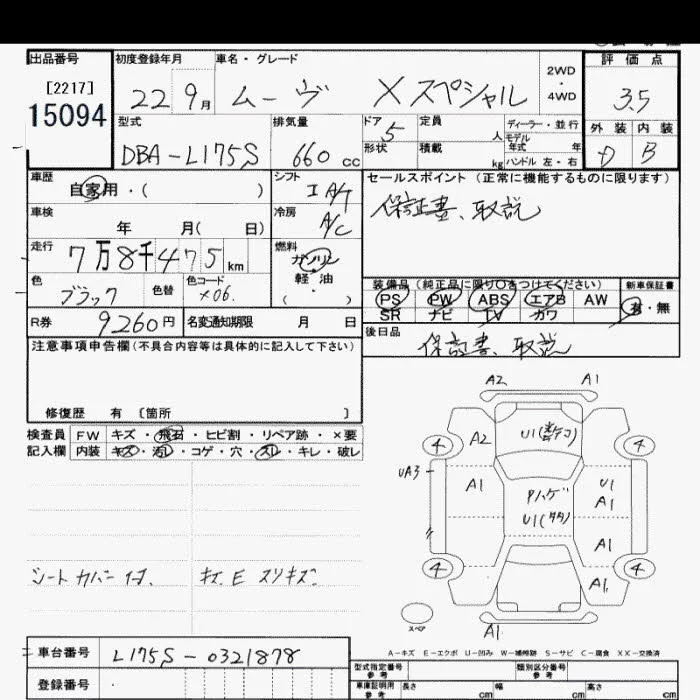 出品番号 初度登録年月 車名・グレード 評価点
[2217] 15094 22 9月 ムーヴ Xスペシャル 2WD・4WD 3.5
型式 排気量 ドア 定員 ディーラー・並行 外装 内装
DBA-L175S 660cc 5 人 モデル年式 年式 D B
形状 積載 kg ハンドル 左・右
車歴 シフト セールスポイント (正常に機能するものに限ります)
自家用・( ) IA/T 保証書、取説
車検 冷房
年 月( 日) A/C
走行 燃料
7万8千475km ガソリン
色 色替 色コード 軽・油
ブラック X06. ( )
装備品 (純正品に限り○をつけてください) 新車保証書
PS PW ABS エアB AW 有・無
SR ナビ TV カワ
R券 9260円 名変通知期限 月 日
後日品
保証書、取説
注意事項申告欄(不具合内容等は具体的に記入して下さい)
修復歴 有 〔箇所 〕
検査員 FW キズ・飛石・ヒビ割・リペア跡・×要
記入欄 内装 キズ・汚レ・コゲ・穴・スレ・キレ・破レ
シートカバー付.
A2 A1
4 A2 U1 4
UA3 A1 Pハゲ U1
A1
A1
4 A1 4
スペア
A1
A-キズ E-エクボ U-凹み W-補修跡 S-サビ C-腐食 XX-交換済
車台番号 L175S-0321878
型式指定番号 参考 類別区分番号 参考
登録番号
車庫証明用 参考 長さ cm 幅 cm 高さ cm